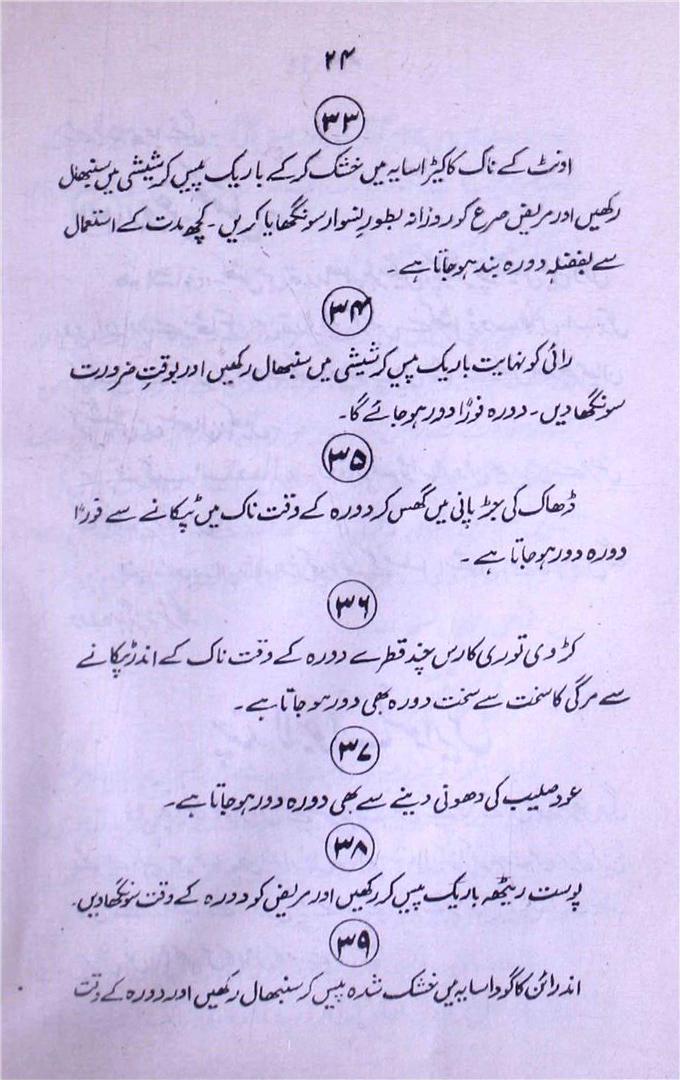 ۲۴
۳۳
اونٹ کے ناک کا کیڑا سایہ میں خشک کر کے باریک پیس کر شیشی میں سنبھال
رکھیں اور مریض صرع کو روزانہ بطور نسوار سونگھایا کریں۔ کچھ مدت کے استعمال
سے بفضلہٖ دورہ بند ہو جاتا ہے۔
۳۴
رائی کو نہایت باریک پیس کر شیشی میں سنبھال رکھیں اور بوقتِ ضرورت
سونگھا دیں۔ دورہ فورًا دور ہو جائے گا۔
۳۵
ڈھاک کی جڑ پانی میں گھس کر دورہ کے وقت ناک میں ٹپکانے سے فورًا
دورہ دور ہو جاتا ہے۔
۳۶
کڑوی توری کا رس چند قطرے دورہ کے وقت ناک کے اندر ٹپکانے
سے مرگی کا سخت سے سخت دورہ بھی دور ہو جاتا ہے۔
۳۷
عود صلیب کی دھونی دینے سے بھی دورہ دور ہو جاتا ہے۔
۳۸
پوست ریٹھہ باریک پیس کر رکھیں اور مریض کو دورہ کے وقت سونگھا دیں۔
۳۹
اندرائن کا گودا سایہ میں خشک شدہ پیس کر سنبھال رکھیں اور دورہ کے وقت